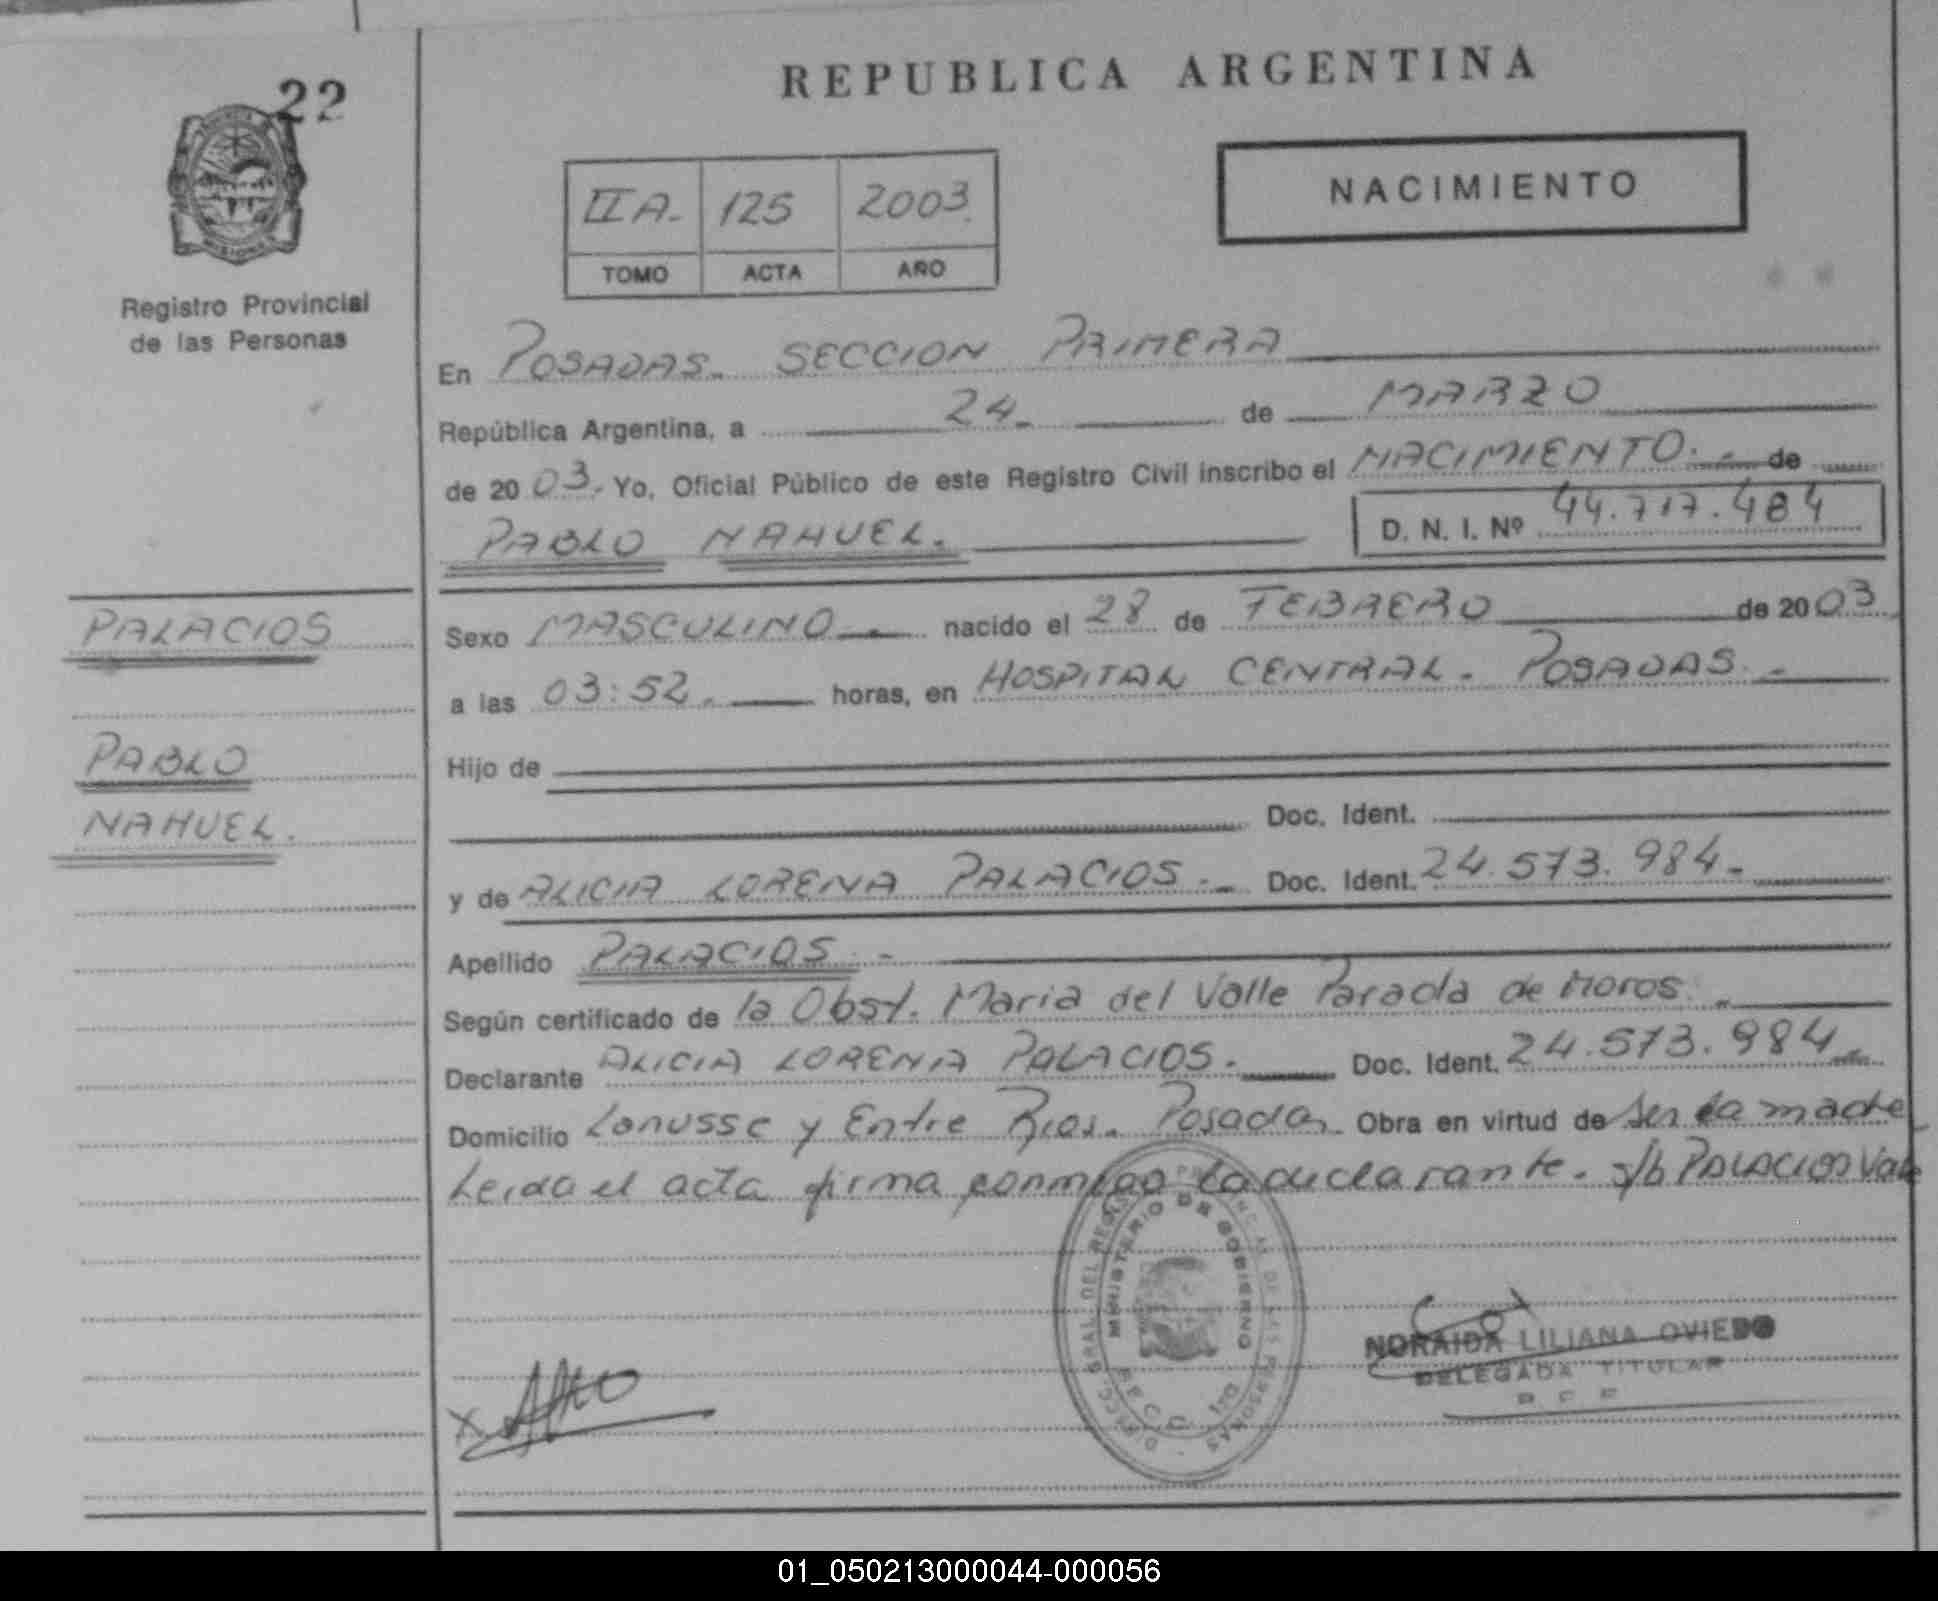 22
REPUBLICA ARGENTINA
NACIMIENTO
II A. 125 2003.
TOMO ACTA AÑO
Registro Provincial
de las Personas
En POSADAS. SECCION PRIMERA
República Argentina, a 24. de MARZO
de 2003. Yo, Oficial Público de este Registro Civil inscribo el NACIMIENTO. de
PABLO NAHUEL. D. N. I. Nº 44.717.484
PALACIOS
PABLO
NAHUEL.
Sexo MASCULINO nacido el 28 de FEBRERO de 2003
a las 03:52. horas, en HOSPITAL CENTRAL. POSADAS.
Hijo de
Doc. Ident.
y de ALICIA LORENA PALACIOS. Doc. Ident. 24.573.984.
Apellido PALACIOS
Según certificado de la Obst. Maria del Valle Parada de Moros.
Declarante ALICIA LORENA PALACIOS. Doc. Ident. 24.573.984
Domicilio Lanusse y Entre Rios. Posadas. Obra en virtud de ser la madre
Leida el acta firma conmigo la declarante. s/b PALACIOS Vale
MINISTERIO DE GOBIERNO
NORAIDA LILIANA OVIEDO
DELEGADA TITULAR
01_050213000044-000056